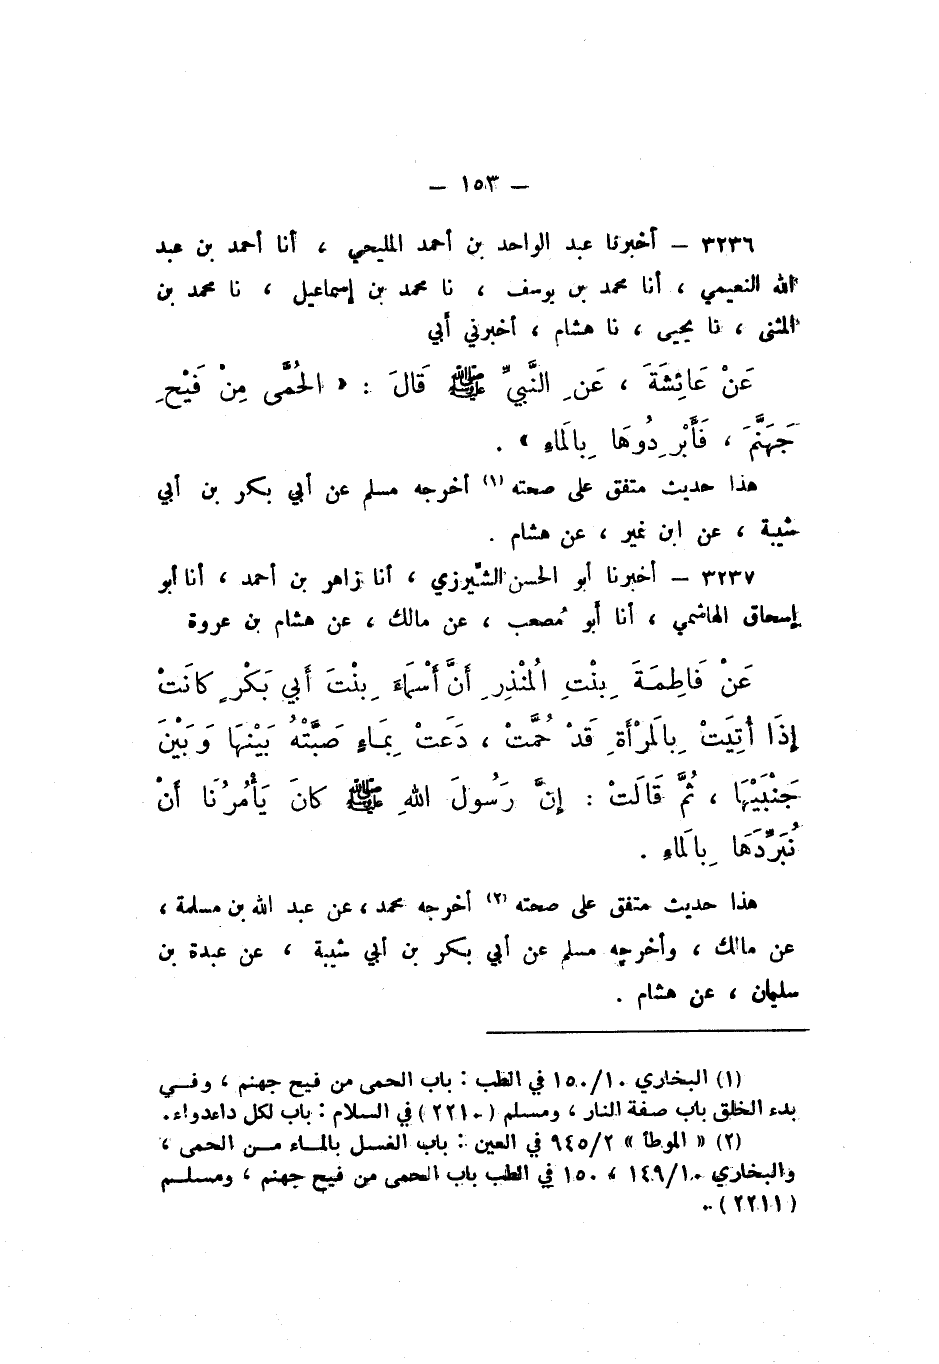 – ١٥٣ –
٣٢٣٦ – أخبرنا عبد الواحد بن أحمد المليحي ، أنا أحمد بن عبد
الله النعيمي ، أنا محمد بن يوسف ، نا محمد بن إسماعيل ، نا محمد بن
المثنى ، نا يحيى ، نا هشام ، أخبرني أبي
عَنْ عَائِشَةَ ، عَنِ النَّبِيِّ ﷺ قَالَ : « الحُمَّى مِنْ فَيْحِ
جَهَنَّمَ ، فَأَبْرِدُوهَا بِالمَاءِ » .
هذا حديث متفق على صحته (١) أخرجه مسلم عن أبي بكر بن أبي
شيبة ، عن ابن نمير ، عن هشام .
٣٢٣٧ – أخبرنا أبو الحسن الشيرزي ، أنا زاهر بن أحمد ، أنا أبو
إسحاق الهاشمي ، أنا أبو مُصعب ، عن مالك ، عن هشام بن عروة
عَنْ فَاطِمَةَ بِنْتِ المُنْذِرِ أَنَّ أَسْمَاءَ بِنْتَ أَبِي بَكْرٍ كَانَتْ
إِذَا أُتِيَتْ بِالمَرْأَةِ قَدْ حُمَّتْ ، دَعَتْ بِمَاءٍ صَبَّتْهُ بَيْنَهَا وَبَيْنَ
جَنْبَيْهَا ، ثُمَّ قَالَتْ : إِنَّ رَسُولَ اللهِ ﷺ كَانَ يَأْمُرُنَا أَنْ
نُبَرِّدَهَا بِالمَاءِ .
هذا حديث متفق على صحته (٢) أخرجه محمد ، عن عبد الله بن مسلمة ،
عن مالك ، وأخرجه مسلم عن أبي بكر بن أبي شيبة ، عن عبدة بن
سليمان ، عن هشام .
(١) البخاري ١٥٠/١٠ في الطب : باب الحمى من فيح جهنم ، وفي
بدء الخلق باب صفة النار ، ومسلم (٢٢١٠) في السلام : باب لكل داء دواء.
(٢) « الموطأ » ٩٤٥/٢ في العين : باب الغسل بالماء من الحمى ،
والبخاري ١٤٩/١٠ ، ١٥٠ في الطب باب الحمى من فيح جهنم ، ومسلم
(٢٢١١) .